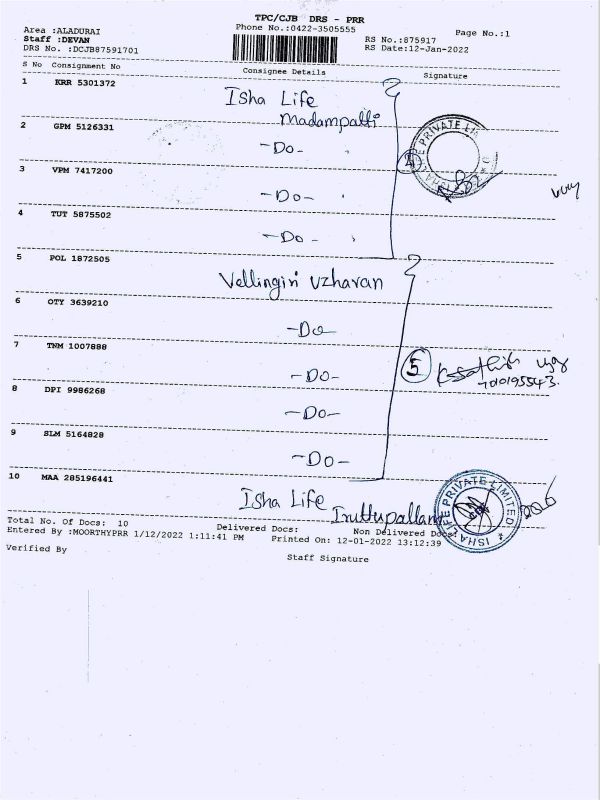 TPC/CJB DRS - PRR
Phone No.:0422-3505555
Page No.:1
Area :ALADURAI
Staff :DEVAN
DRS No. :DCJB87591701
RS No.:875917
RS Date:12-Jan-2022
S No Consignment No Consignee Details Signature
1 KRR 5301372 Isha Life
Madampatti
2 GPM 5126331 -Do-
3 VPM 7417200 -Do-
4 TUT 5875502 -Do-
4
ISHA LIFE PRIVATE LIM
5 POL 1872505 Vellingiri Uzhavan
6 OTY 3639210 -Do-
7 TNM 1007888 -Do-
8 DPI 9986268 -Do-
9 SLM 5164828 -Do-
5
10 MAA 285196441 Isha Life Iruttupallam
ISHA LIFE PRIVATE LIMITED
Total No. Of Docs: 10 Delivered Docs: Non Delivered Docs:
Entered By :MOORTHYPRR 1/12/2022 1:11:41 PM Printed On: 12-01-2022 13:12:39
Verified By Staff Signature